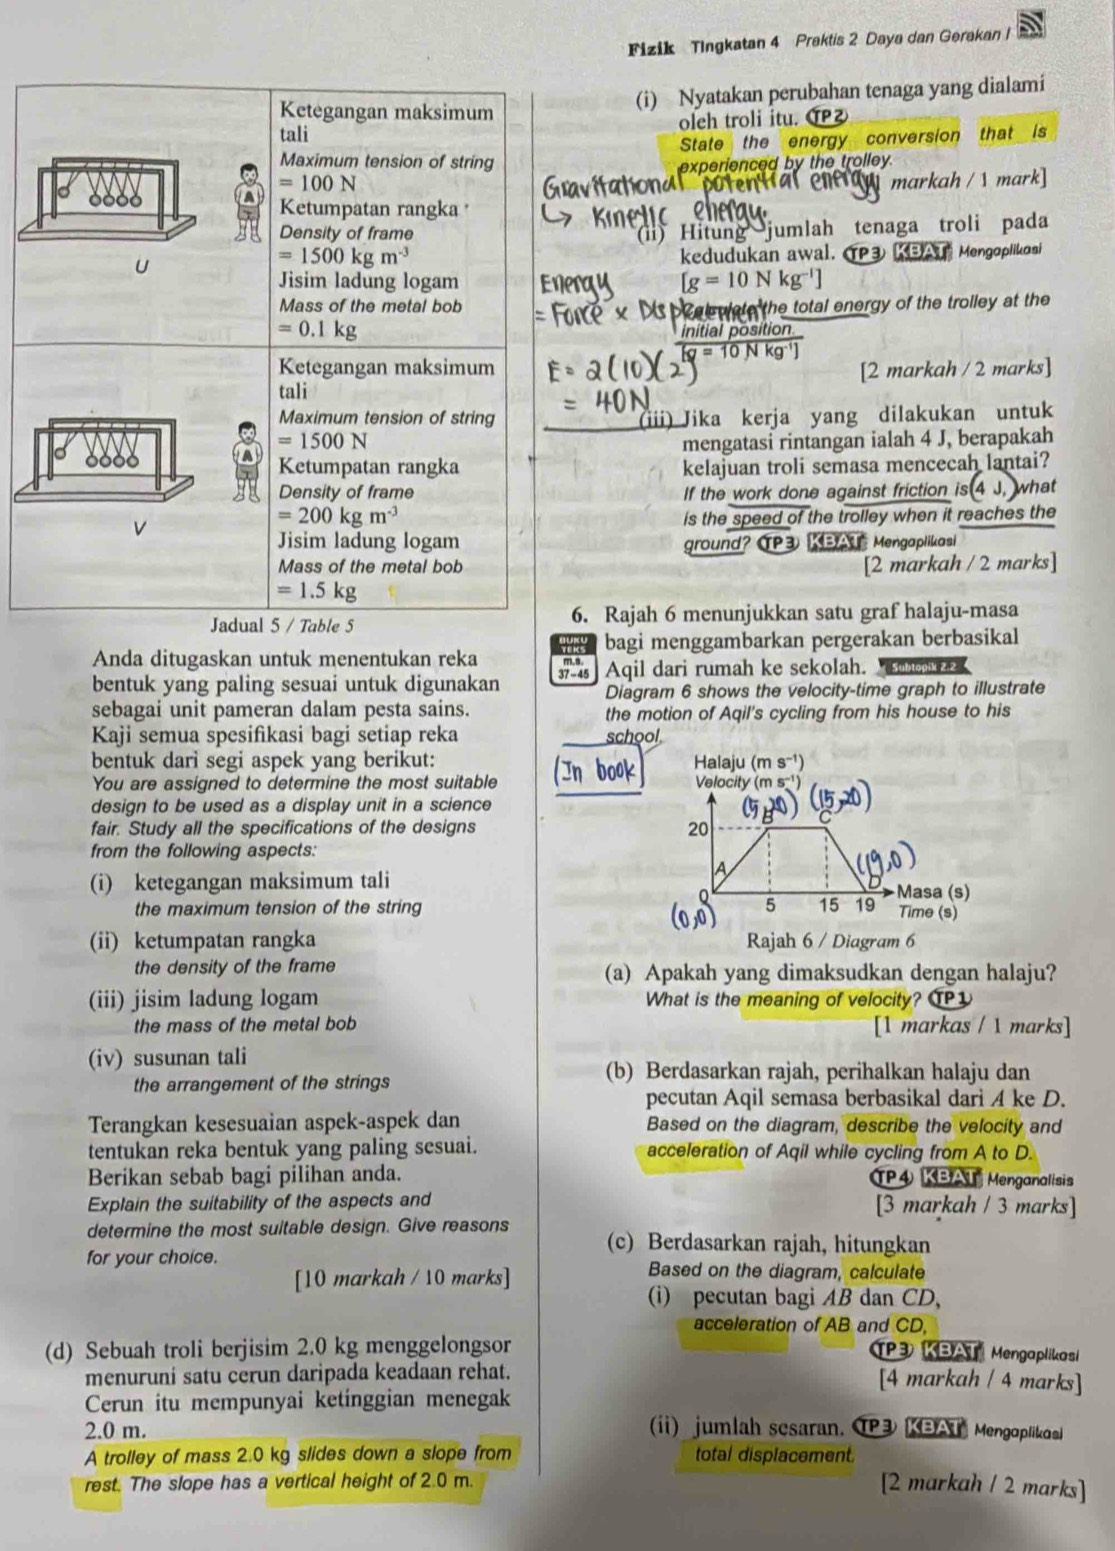 Fizik Tingkatan 4 Praktis 2 Daya dan Gerakan I
U
Ketegangan maksimum
tali
Maximum tension of string
= 100 N
Ketumpatan rangka
Density of frame
= 1500 kg m⁻³
Jisim ladung logam
Mass of the metal bob
= 0.1 kg
V
Ketegangan maksimum
tali
Maximum tension of string
= 1500 N
Ketumpatan rangka
Density of frame
= 200 kg m⁻³
Jisim ladung logam
Mass of the metal bob
= 1.5 kg
Jadual 5 / Table 5
Anda ditugaskan untuk menentukan reka
bentuk yang paling sesuai untuk digunakan
sebagai unit pameran dalam pesta sains.
Kaji semua spesifikasi bagi setiap reka
bentuk dari segi aspek yang berikut:
You are assigned to determine the most suitable
design to be used as a display unit in a science
fair. Study all the specifications of the designs
from the following aspects:
(i) ketegangan maksimum tali
the maximum tension of the string
(ii) ketumpatan rangka
the density of the frame
(iii) jisim ladung logam
the mass of the metal bob
(iv) susunan tali
the arrangement of the strings
Terangkan kesesuaian aspek-aspek dan
tentukan reka bentuk yang paling sesuai.
Berikan sebab bagi pilihan anda.
Explain the suitability of the aspects and
determine the most suitable design. Give reasons
for your choice.
[10 markah / 10 marks]
(d) Sebuah troli berjisim 2.0 kg menggelongsor
menuruni satu cerun daripada keadaan rehat.
Cerun itu mempunyai ketinggian menegak
2.0 m.
A trolley of mass 2.0 kg slides down a slope from
rest. The slope has a vertical height of 2.0 m.
(i) Nyatakan perubahan tenaga yang dialami
oleh troli itu. TP2
State the energy conversion that is
experienced by the trolley.
Gravitational potential energy markah / 1 mark]
↳ Kinetic energy.
(ii) Hitung jumlah tenaga troli pada
kedudukan awal. TP3 KBAT Mengaplikasi
Energy [g = 10 N kg⁻¹]
= Force x Displacement the total energy of the trolley at the
initial position.
[g = 10 N kg⁻¹]
E = 2(10)(2)
[2 markah / 2 marks]
= 40N
(iii) Jika kerja yang dilakukan untuk
mengatasi rintangan ialah 4 J, berapakah
kelajuan troli semasa mencecah lantai?
If the work done against friction is 4 J, what
is the speed of the trolley when it reaches the
ground? TP3 KBAT Mengaplikasi
[2 markah / 2 marks]
6. Rajah 6 menunjukkan satu graf halaju-masa
BUKU TEKS bagi menggambarkan pergerakan berbasikal
m.s. 37–45 Aqil dari rumah ke sekolah. Subtopik 2.2
Diagram 6 shows the velocity-time graph to illustrate
the motion of Aqil's cycling from his house to his
school.
(In book)
Halaju (m s⁻¹)
Velocity (m s⁻¹)
(5,20) (15,20)
B C
20
A
(19,0)
D
0
Masa (s)
5 15 19 Time (s)
(0,0)
Rajah 6 / Diagram 6
(a) Apakah yang dimaksudkan dengan halaju?
What is the meaning of velocity? TP1
[1 markas / 1 marks]
(b) Berdasarkan rajah, perihalkan halaju dan
pecutan Aqil semasa berbasikal dari A ke D.
Based on the diagram, describe the velocity and
acceleration of Aqil while cycling from A to D.
TP4 KBAT Menganalisis
[3 markah / 3 marks]
(c) Berdasarkan rajah, hitungkan
Based on the diagram, calculate
(i) pecutan bagi AB dan CD,
acceleration of AB and CD,
TP3 KBAT Mengaplikasi
[4 markah / 4 marks]
(ii) jumlah sesaran. TP3 KBAT Mengaplikasi
total displacement.
[2 markah / 2 marks]